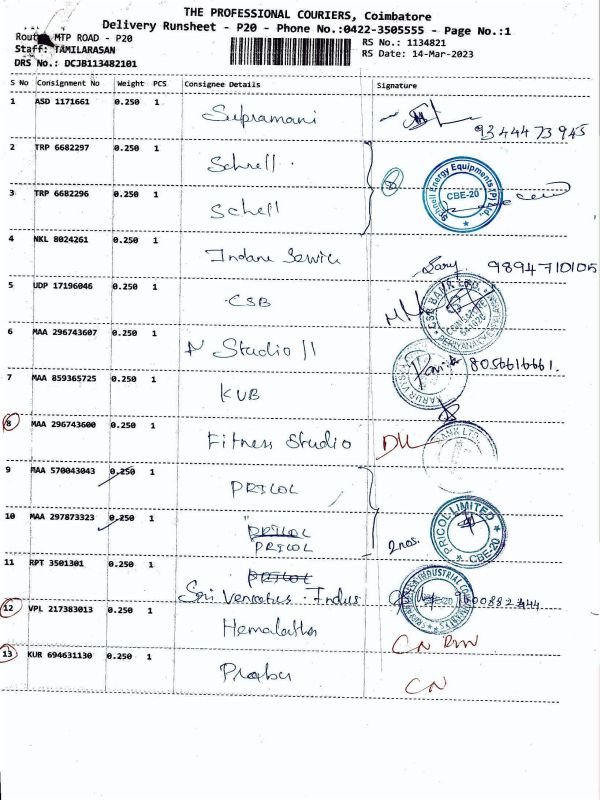 THE PROFESSIONAL COURIERS, Coimbatore
Delivery Runsheet - P20 - Phone No.:0422-3505555 - Page No.:1
Route: MTP ROAD - P20
RS No.: 1134821
Staff: TAMILARASAN
RS Date: 14-Mar-2023
DRS No.: DCJB113482101
S No Consignment No Weight PCS Consignee Details Signature
1 ASD 1171661 0.250 1 Supramani 9344473945
2 TRP 6682297 0.250 1 Schnell
3 TRP 6682296 0.250 1 Schell
Schnell Energy Equipments (P) Ltd.
CBE-20
4 NKL 8024261 0.250 1 Indane Service 9894710105
5 UDP 17196046 0.250 1 CSB
CSB BANK LTD.
6 MAA 296743607 0.250 1 N Studio 11 8056616661.
7 MAA 859365725 0.250 1 KVB
KARUR VYSYA
BANK LTD
8 MAA 296743600 0.250 1 Fitness Studio DL
9 MAA 570043043 0.250 1 PRICOL
10 MAA 297873323 0.250 1 PRICOL
PRICOL
2 nos.
PRICOL LIMITED
CBE-20
11 RPT 3501301 0.250 1 PRICOL
Sri Venkates. Indus 9600882444
12 VPL 217383013 0.250 1 Hemalatha CN RW
13 KUR 694631130 0.250 1 Prabu CN